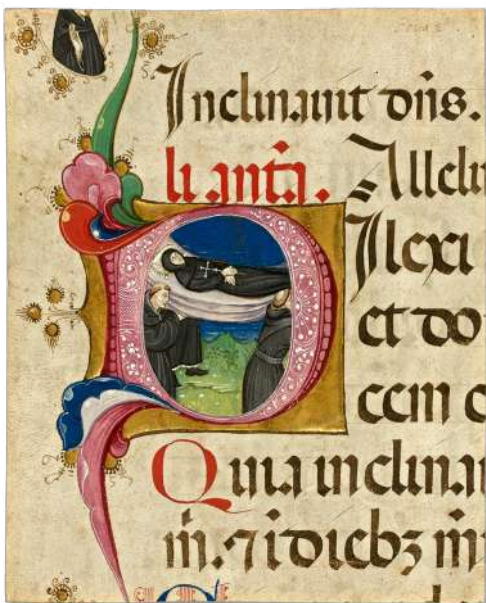 Inclinauit dn̄s.
li. ant̄a. Allelu
Dilexi
et do
cem o
Quia inclina
m̄. ⁊ i diebꝫ m̄